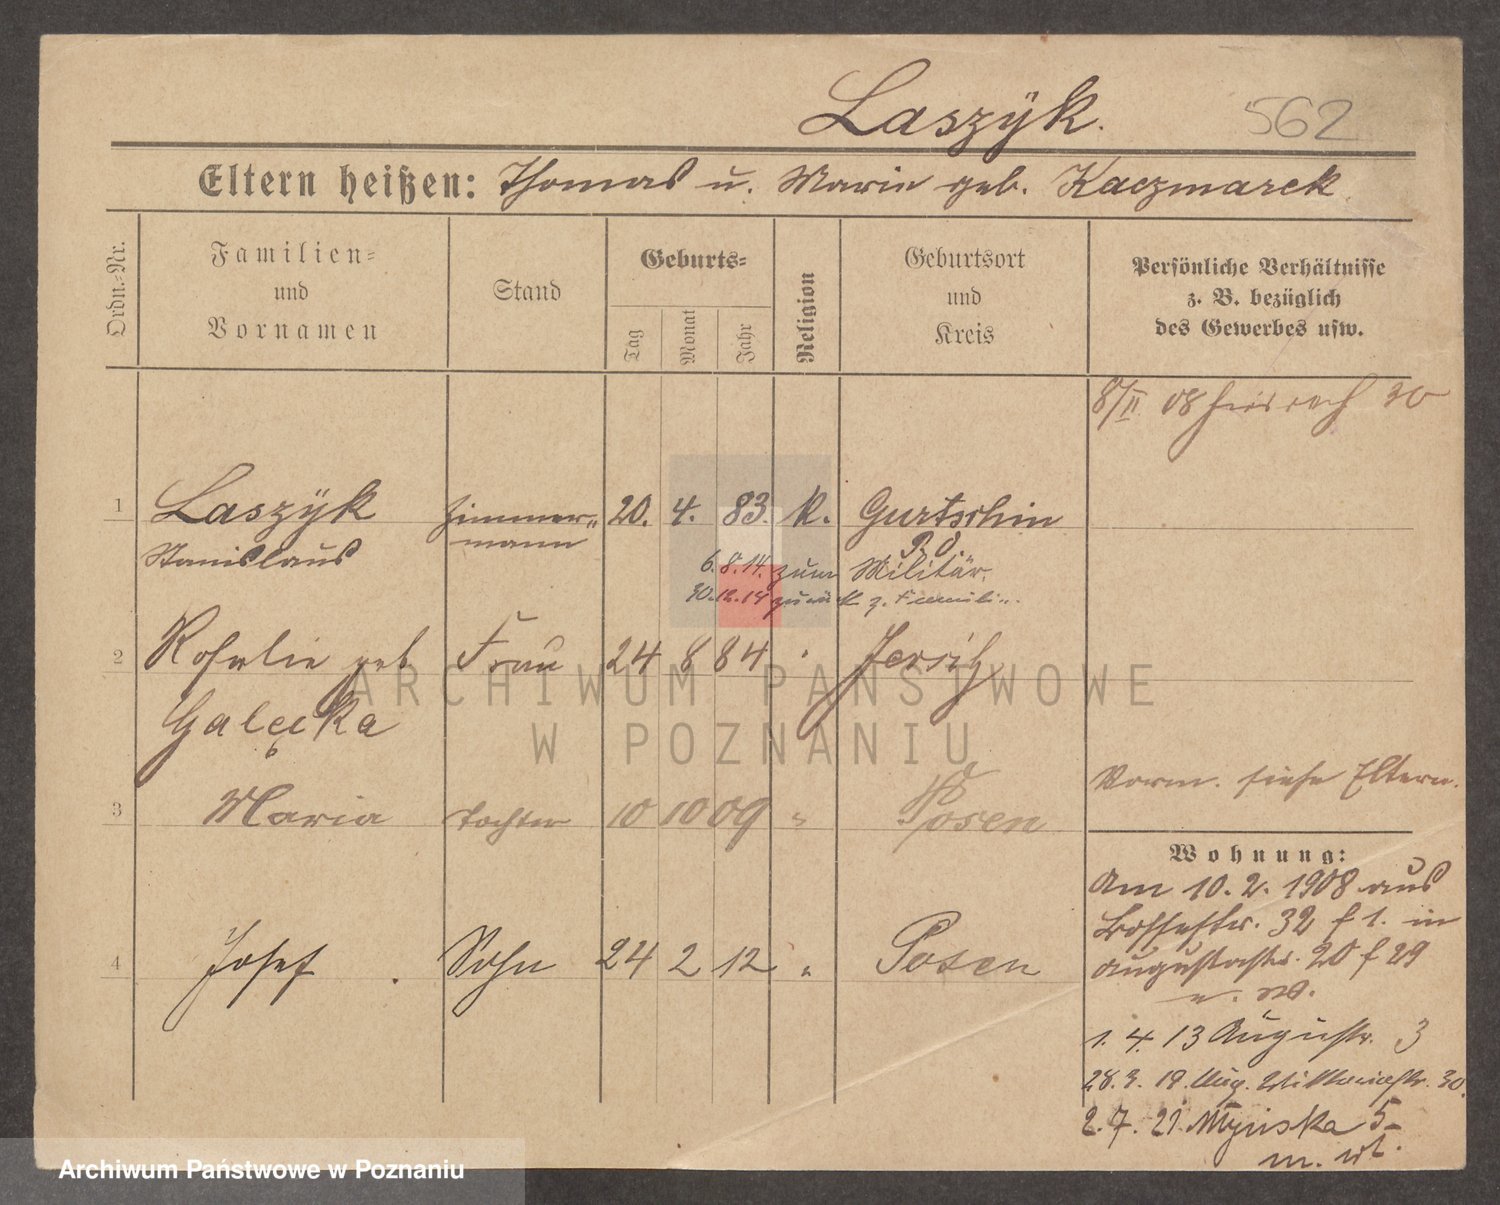 Laszÿk. 562
Eltern heißen: Thomas u. Marie geb. Kaczmarek
Ordn.-Nr.
Familien-
und
Vornamen
Stand
Geburts-
Tag
Monat
Jahr
Religion
Geburtsort
und
Kreis
Persönliche Verhältnisse
z. B. bezüglich
des Gewerbes usw.
8/II 08 30
1 Laszÿk Zimmer- 20. 4. 83. k. Gurtschin
Stanislaus mann P. O.
6.8.14. zum Militär.
30.12.14 zurück z. Familie.
2 Rosalie geb Frau 24 8 84 " Jersitz
Galęcka
3 Maria Tochter 10 10 09 " Posen
Vorm. siehe Eltern.
Wohnung:
Am 10. 2. 1908 aus
32 f 1. in
Augustastr. 20 f 29
4 Josef Sohn 24 2 12 " Posen
1. 4. 13 Augustr. 3
28.3. 19. Aug. Viktoriastr. 30.
2. 7. 21. Młyńska 5
ARCHIWUM PAŃSTWOWE
W POZNANIU
Archiwum Państwowe w Poznaniu